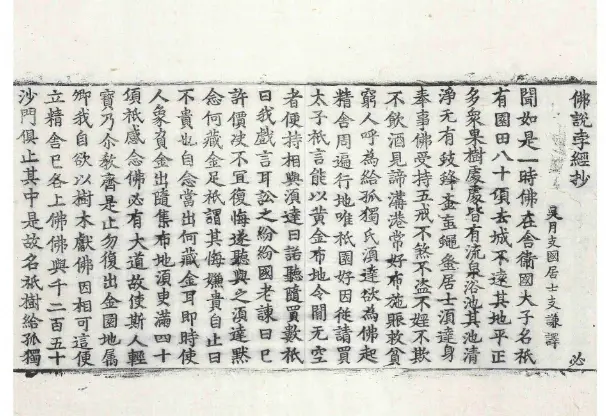 佛說孛經抄
吳月支國居士支謙譯
必
聞如是一時佛在舍衛國大子名祇
有園田八十頃去城不遠其地平正
多衆果樹處處皆有流泉浴池其池清
淨无有蚑蜂蚊䖟蠅蚤居士湏達身
奉事佛受持五戒不煞不盜不婬不欺
不飮酒見諦溝港常好布施賑救貧
窮人呼爲給孤獨氏湏達欲爲佛起
精舍周遍行地唯祇園好因從請買
太子祇言能以黃金布地令間无空
者便持相與湏達曰諾聽隨買數祇
曰我戲言耳訟之紛紛國老諫曰已
許價決不宜復悔遂聽與之湏達默
念何藏金足祇謂其悔嫌貴自止曰
不貴也自念當出何藏金耳即時使
人象負金出隨集布地湏臾滿四十
頃祇感念佛必有大道故使斯人輕
寶乃尒敎齊是止勿復出金園地屬
卿我自欲以樹木獻佛因相可這便
立精舍已各上佛佛與千二百五十
沙門俱止其中是故名祇樹給孤獨